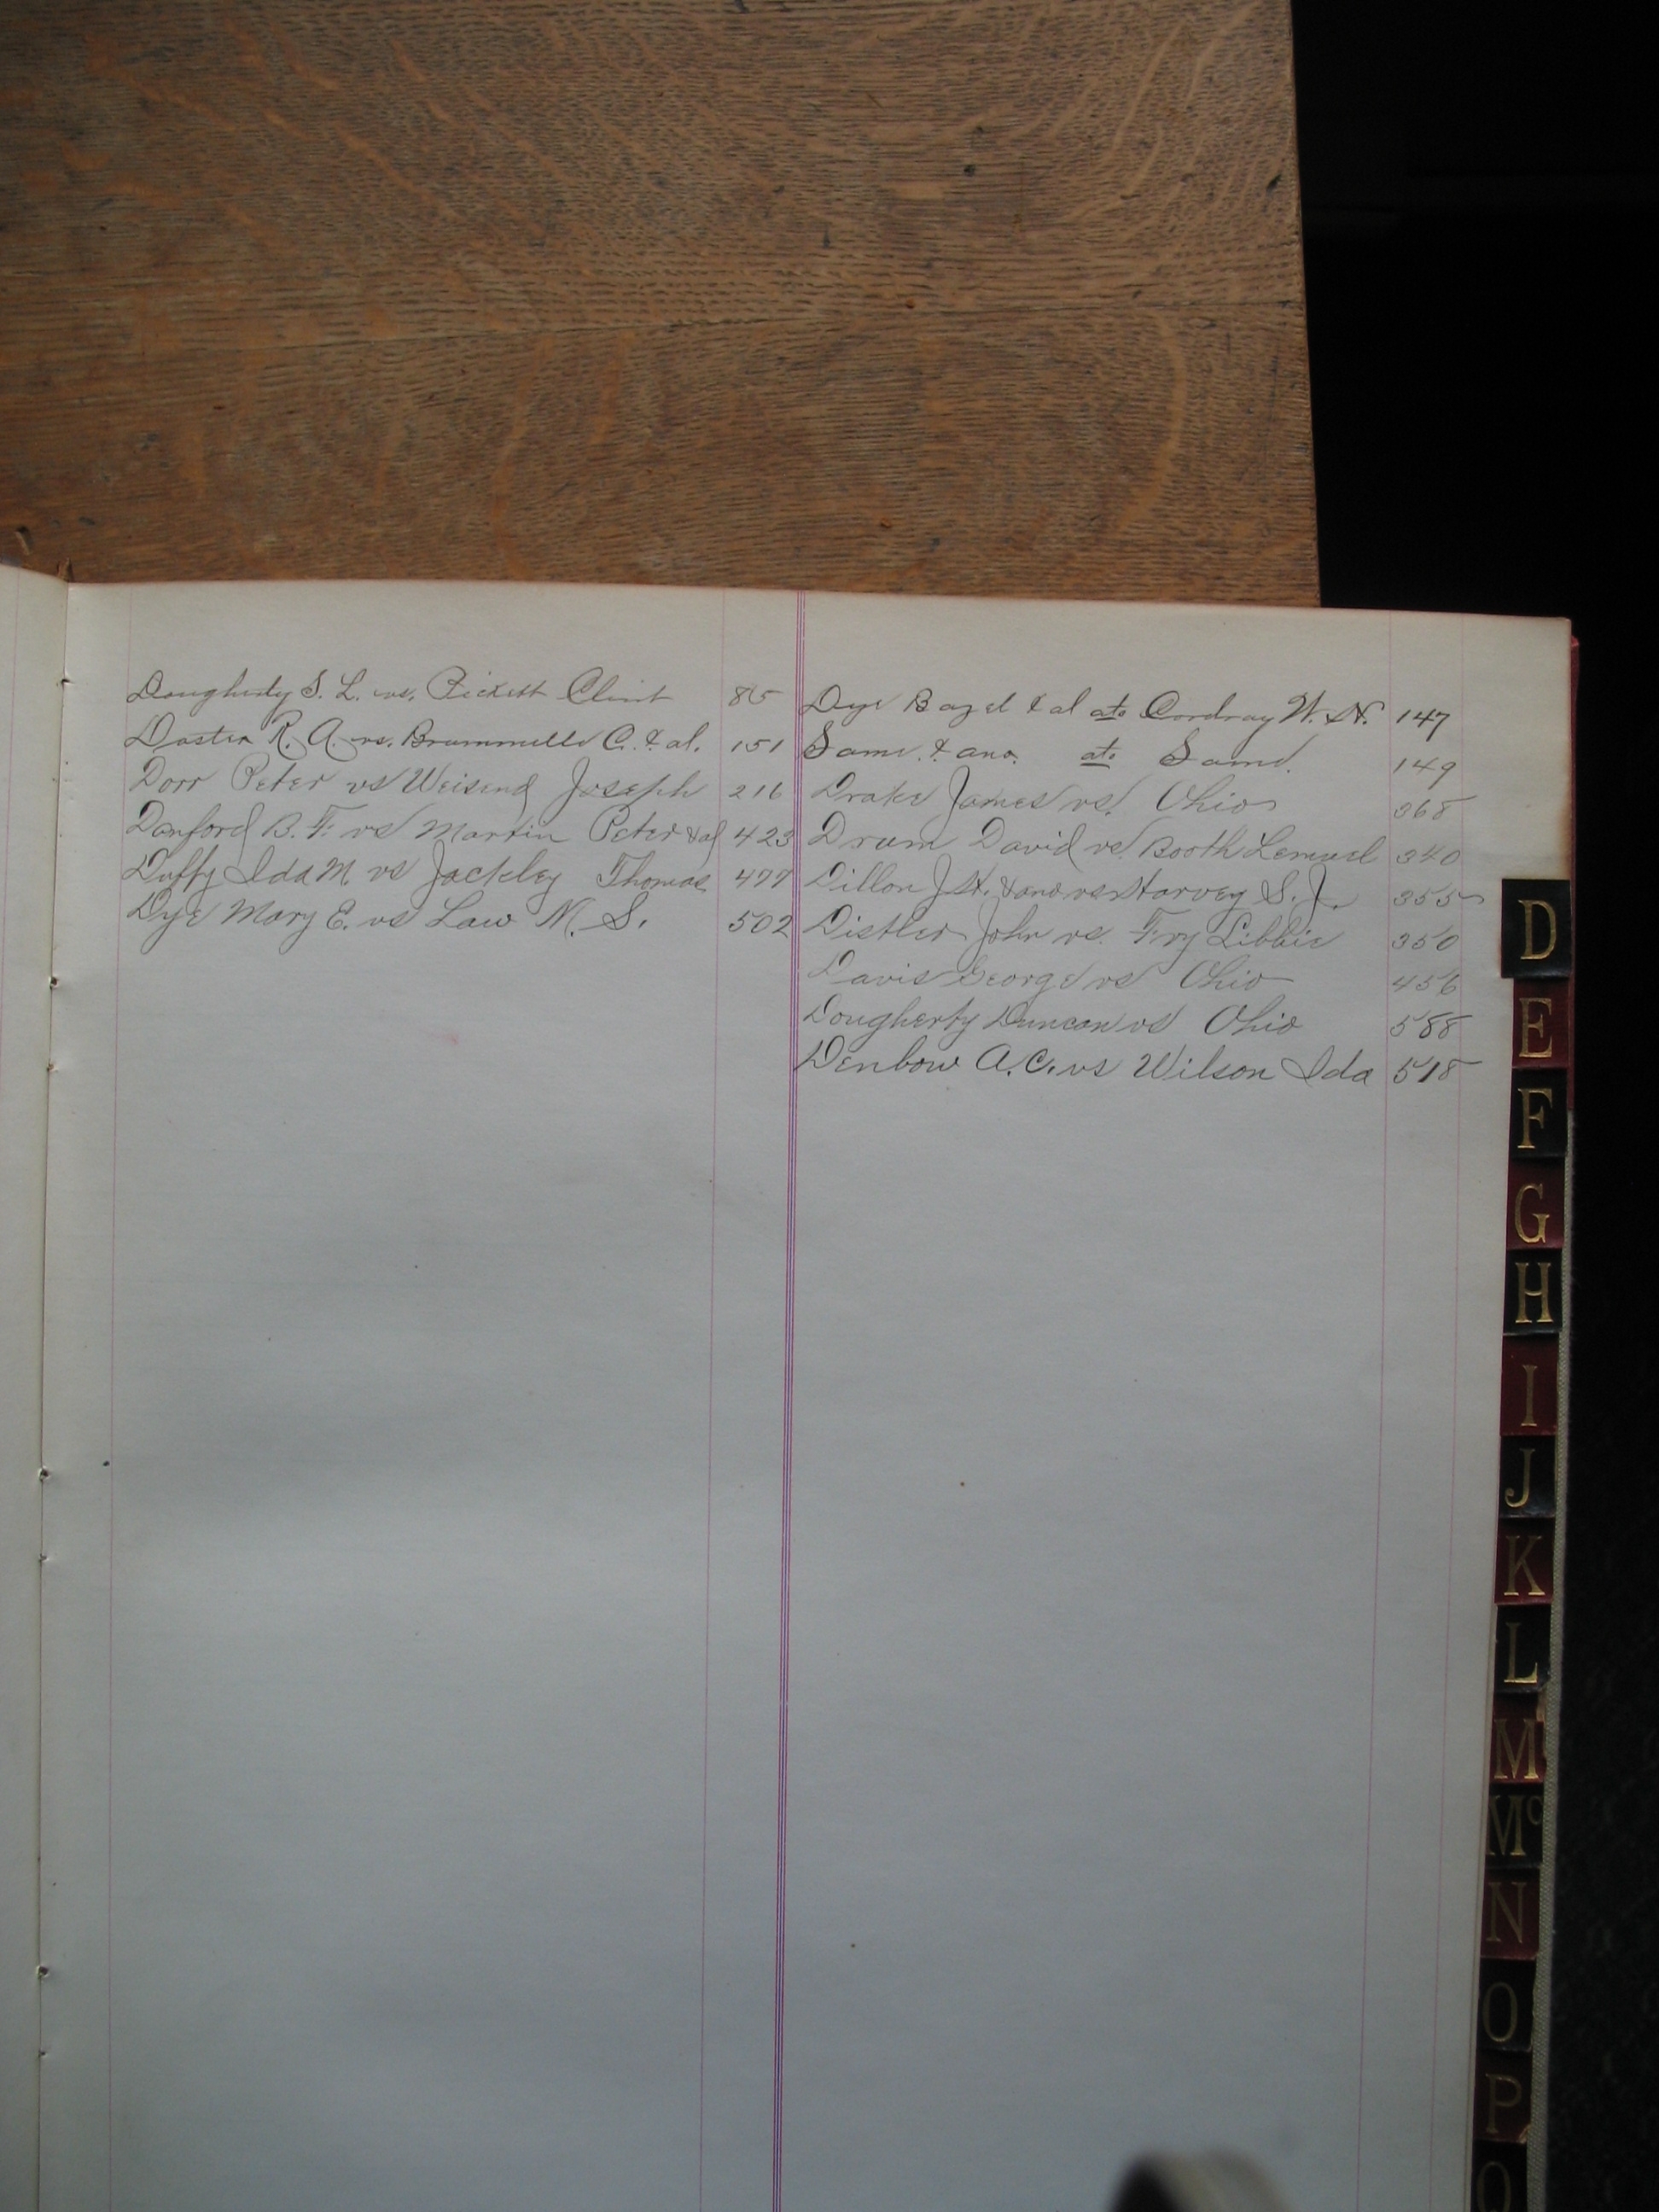 Dougherty S. L. vs. Pickett Clint 85
Doster R. A. vs. Brummell C. & al. 151
Dorr Peter vs Weisend Joseph 216
Danford B. F. vs Martin Peter & al 423
Duffy Ida M. vs Jackley Thomas 477
Dye Mary E. vs Law N. S. 502
Dye Bazel & al ats Cordray W. H. 147
Same & ano. ats Same. 149
Drake James vs. Ohio 368
Drum David vs. Booth Lemuel 340
Dillon J. H. & ano vs Harvey S. J. 355
Distler John vs. Fry Libbie 350
Davis George vs Ohio 456
Dougherty Duncan vs Ohio 588
Denbow A. C. vs Wilson Ida 518
D
E
F
G
H
I
J
K
L
M
Mc
N
O
P
Q